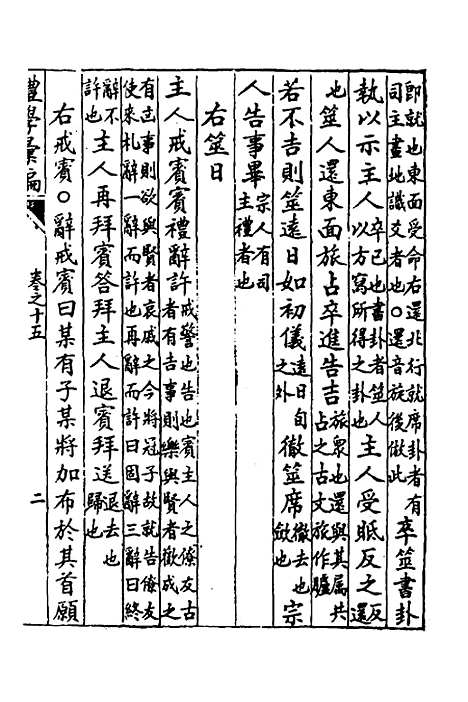 即就也東面受命右還北行就席卦者有
司主畫地識爻者也○還音旋後倣此
卒筮書卦
執以示主人
卒已也書卦者筮人
以方寫所得之卦也
主人受眂反之
反
還
也
筮人還東面旅占卒進告吉
旅衆也還與其屬共
占之古文旅作臚
若不吉則筮遠日如初儀
遠日旬
之外
徹筮席
徹去也
斂也
宗
人告事畢
宗人有司
主禮者也
右筮日
主人戒賓賓禮辭許
戒警也告也賓主人之僚友古
者有吉事則樂與賢者歡成之
有凶事則欲與賢者哀戚之今將冠子故就告僚友
使來禮辭一辭而許也再辭而許曰固辭三辭曰終
辭不
許也
主人再拜賓答拜主人退賓拜送
退去也
歸也
右戒賓○辭戒賓曰某有子某將加布於其首願
禮學彙編
卷之十五
二